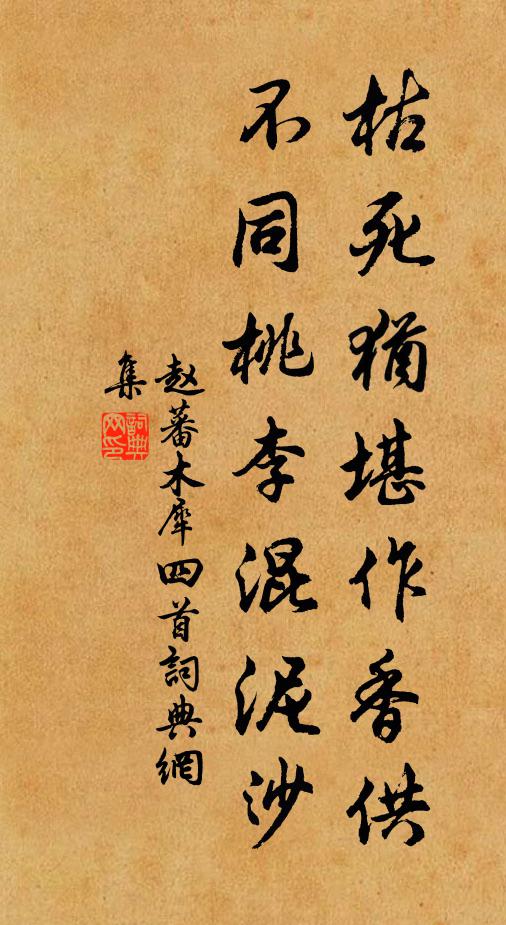 枯死猶堪作香供
不同桃李混泥沙
赵蕃木犀四首詞典網
集
詞典网印